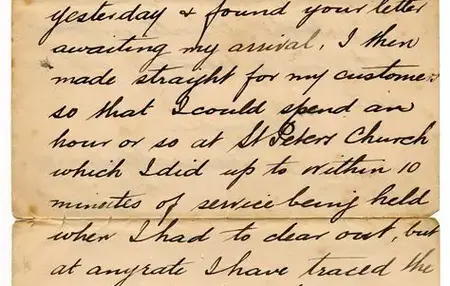 yesterday & found your letter
awaiting my arrival. I then
made straight for my customers
so that I could spend an
hour or so at St Peters Church
which I did up to within 10
minutes of service being held
when I had to clear out, but
at anyrate I have traced the